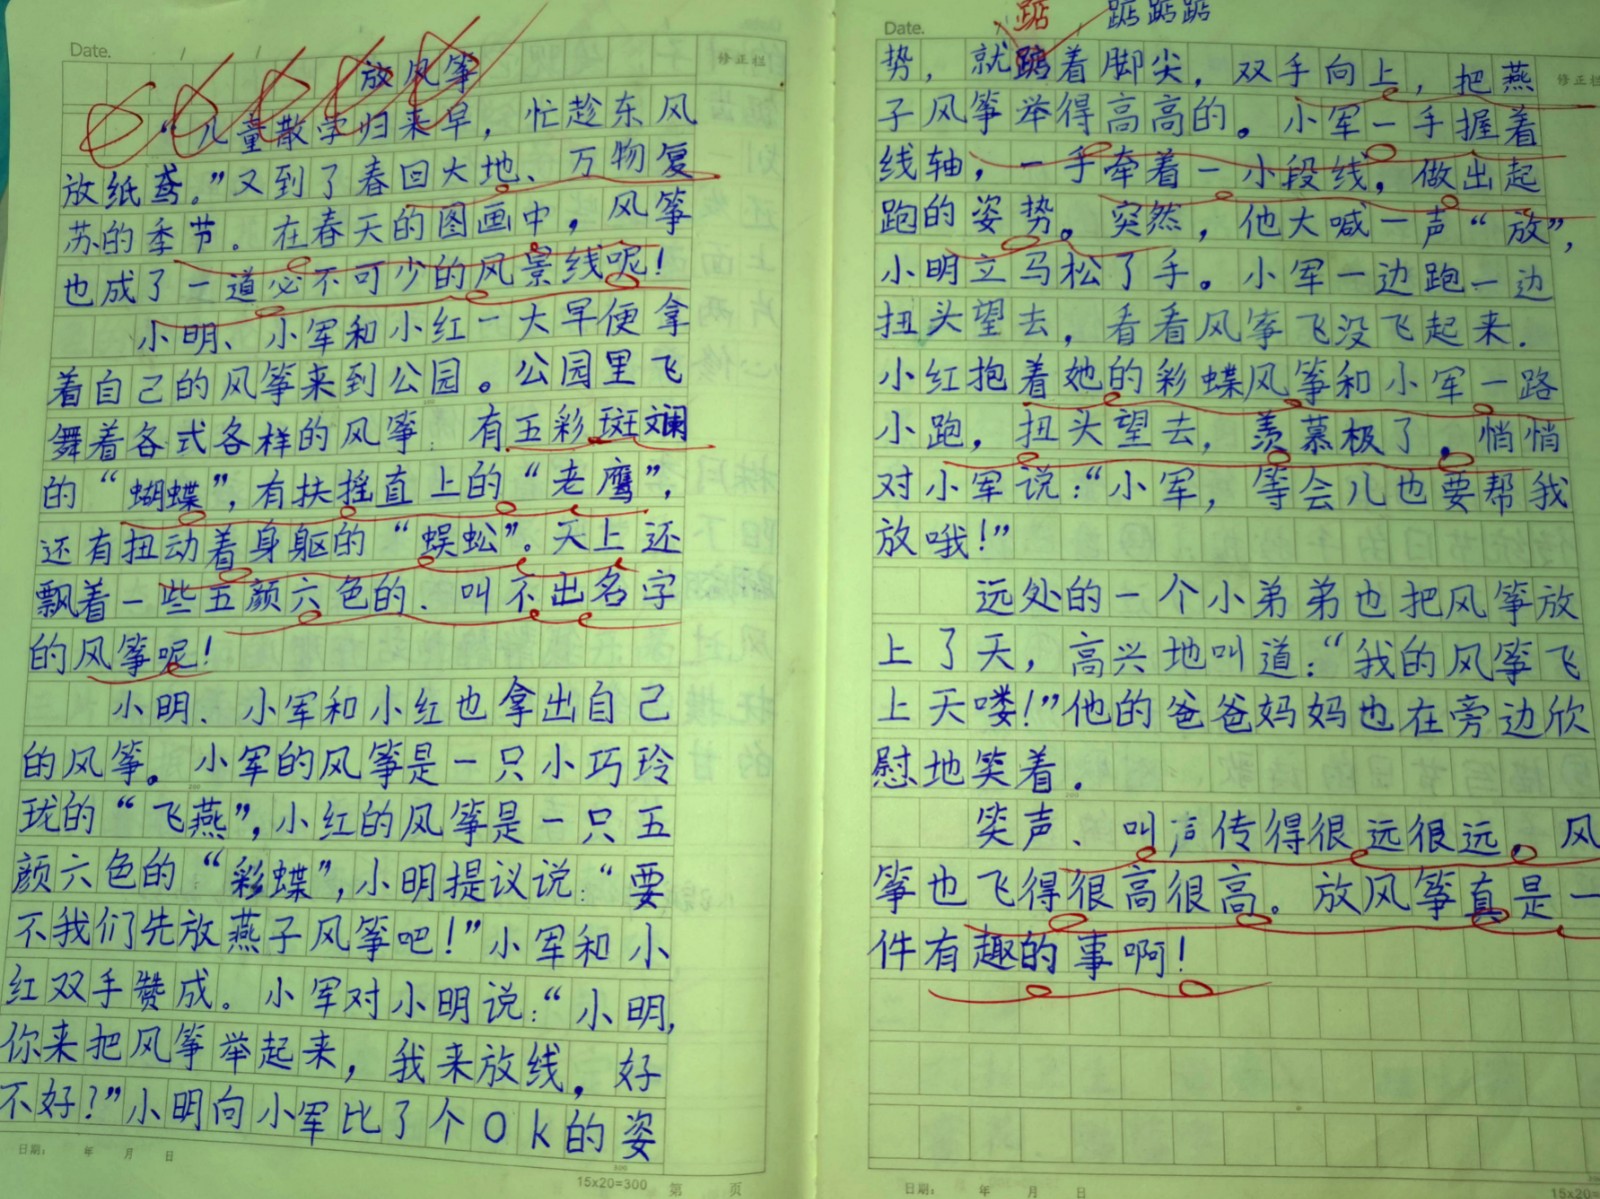 Date. / /
修正栏
放风筝
“儿童散学归来早，忙趁东风
放纸鸢。”又到了春回大地、万物复
苏的季节。在春天的图画中，风筝
也成了一道必不可少的风景线呢！
小明、小军和小红一大早便拿
着自己的风筝来到公园。公园里飞
舞着各式各样的风筝：有五彩斑斓
的“蝴蝶”，有扶摇直上的“老鹰”，
还有扭动着身躯的“蜈蚣”。天上还
飘着一些五颜六色的、叫不出名字
的风筝呢！
小明、小军和小红也拿出自己
的风筝。小军的风筝是一只小巧玲
珑的“飞燕”，小红的风筝是一只五
颜六色的“彩蝶”，小明提议说：“要
不我们先放燕子风筝吧！”小军和小
红双手赞成。小军对小明说：“小明，
你来把风筝举起来，我来放线，好
不好？”小明向小军比了个Ok的姿
日期： 年 月 日
300
15x20=300 第 页
Date. /
踮
踮踮踮
修正栏
势，就着脚尖，双手向上，把燕
子风筝举得高高的。小军一手握着
线轴，一手牵着一小段线，做出起
跑的姿势。突然，他大喊一声“放”，
小明立马松了手。小军一边跑一边
扭头望去，看看风筝飞没飞起来.
小红抱着她的彩蝶风筝和小军一路
小跑，扭头望去，羡慕极了。悄悄
对小军说：“小军，等会儿也要帮我
放哦！”
远处的一个小弟弟也把风筝放
上了天，高兴地叫道：“我的风筝飞
上天喽！”他的爸爸妈妈也在旁边欣
慰地笑着.
笑声、叫声传得很远很远。风
筝也飞得很高很高。放风筝真是一
件有趣的事啊！
日期： 年 月 日
15x20=